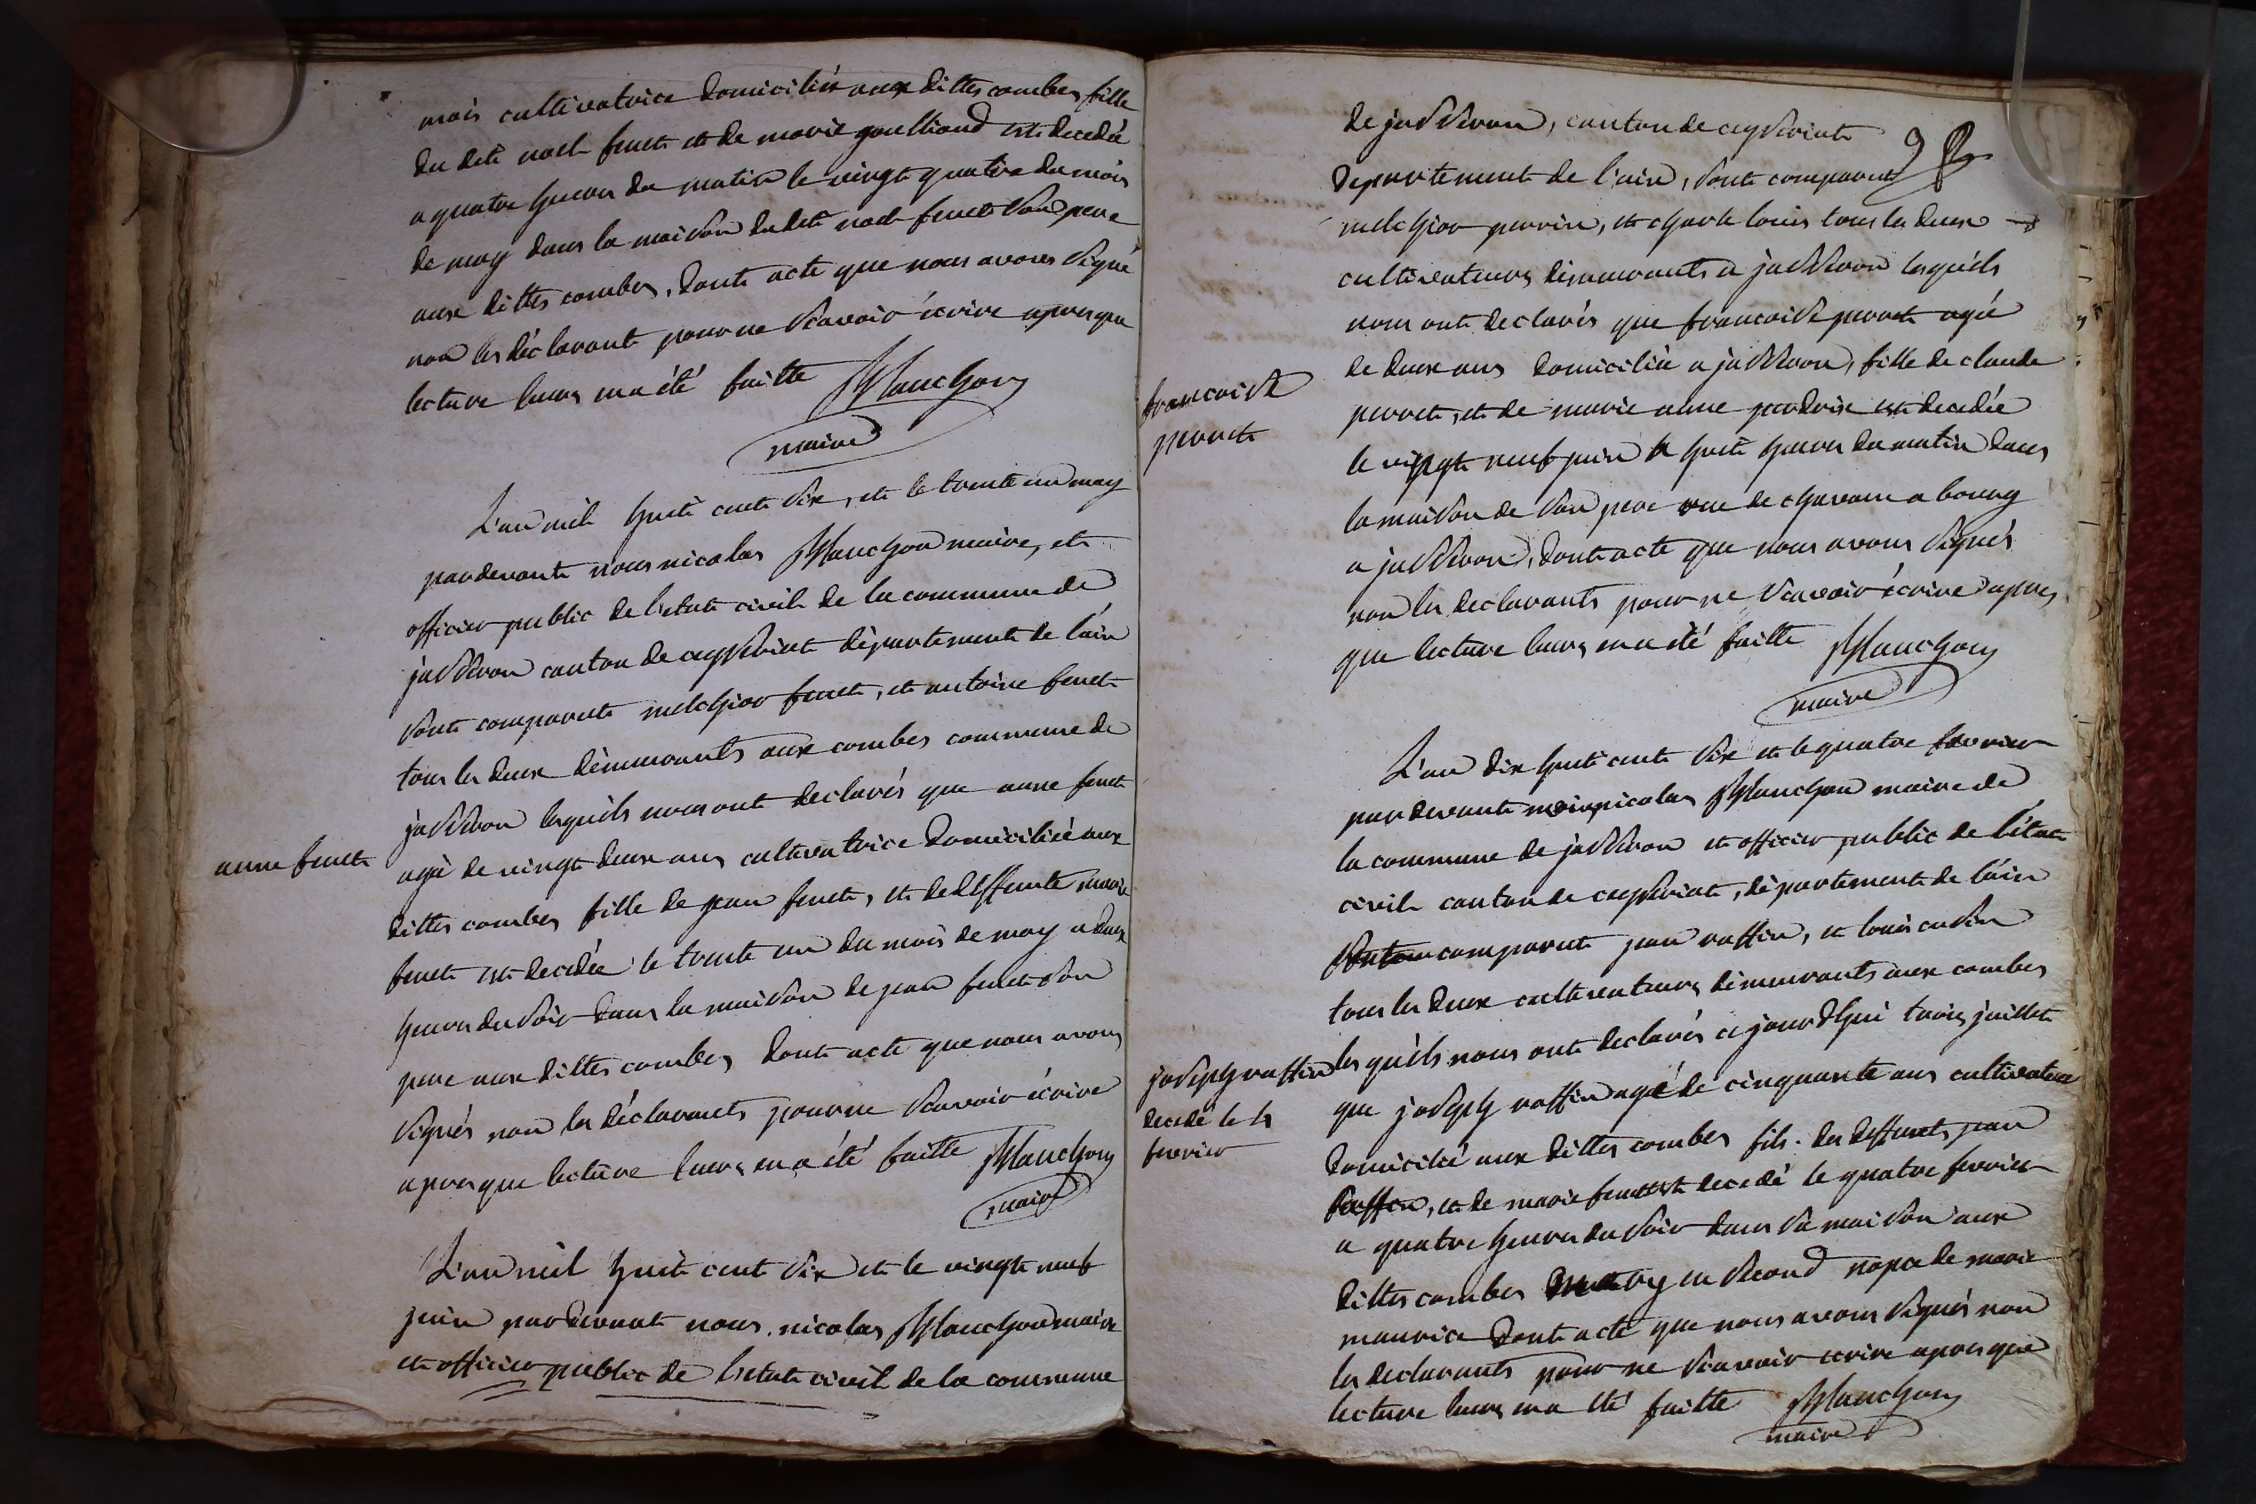 mois cultivatrice domiciliée aux dittes combes fille
du dit noel feuet et de marie goulliaud est decedée
a quatre heures du matin le vingt quatre du mois
de may dans la maison du dit noel feuet son pere
aux dittes combes, dont acte que nous avons signé
non les déclarant pour ne scavoir écrire apres que
lecture leurs en a été faitte Manchon
maire
L'an mil huit cent dix, et le trente un may
pardevant nous nicolas Manchon maire, et
officier public de l'etat civil de la commune de
jasseron canton de ceyzeriat département de l'ain
sont comparut melchior feuet, et antoine feuet
tous les deux démeurants aux combes commune de
jasseron lesquels nous ont declarés que anne feuet
anne feuet
agé de vingt deux ans cultivatrice domiciliée aux
dittes combes fille de jean feuet, et de deffunte marie
feuet est decedée le trente un du mois de may a deux
heures du soir dans la maison de jean feuet son
pere aux dittes combes dont acte que nous avons
signés non les déclarants pour ne scavoir écrire
apres que lecture leurs en a été faitte Manchon
maire
L'an mil huit cent dix et le vingt neuf
juin pardevant nous nicolas Manchon maire
et officier public de l'etat civil de la commune
de jasseron, canton de ceyzeriat
departement de l'ain, sont comparut
melchior perrin, et charle louis tous les deux
cultivateurs démeurants a jasseron lesquels
nous ont declarés que francoise perret agé
francoise
perret
de deux ans domiciliée a jasseron, fille de claude
perret, et de marie anne est decedée
le vingt neuf juin a huit heures du matin dans
la maison de son pere rue de a bourg
a jasseron, dont acte que nous avons signés
non les declarants pour ne scavoir écrire apres
que lecture leurs en a été faitte Manchon
maire
L'an dix huit cent dix et le quatre fevrier
par devant nicolas Manchon maire de
la commune de jasseron et officier public de l'état
civil canton de ceyzeriat, département de l'ain
comparut jean raffin, et louis
tous les deux cultivateurs démeurants aux combes
lesquels nous ont declarés ce jourd'hui trois juillet
joseph raffin
decedé le 4
fevrier
que joseph raffin agé de cinquante ans cultivateur
domicilié aux dittes combes fils des deffunts jean
Raffin, et de marie feuet est decedé le quatre fevrier
a quatre heures du soir dans sa maison aux
dittes combes en second nopce de marie
maurice dont acte que nous avons signés non
les declarants pour ne scavoir ecrire apres que
lecture leurs en a été faitte Manchon
maire